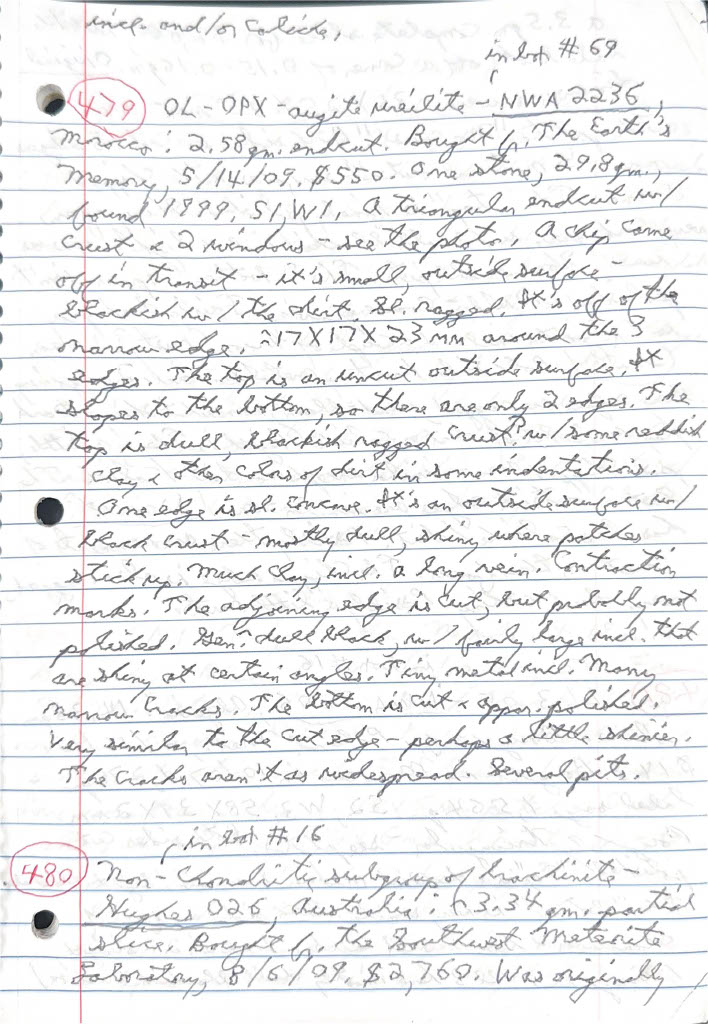 incl. and/or calcide.
in bot #69
479 OL-OPX-augite ureilite - NWA 2236,
Morocco: 2.58 gm. endcut. Bought fr. The Earth's
Memory, 5/14/09. $550. One stone, 29.8 gm.,
found 1999, S1, W1. A triangular endcut w/
crust & 2 windows - see the photo. A chip came
off in transit - it's small, outside surface -
blackish w/ the dirt. Sl. ragged. It's off of the
narrow edge. ≈17X17X23 MM around the 3
edges. The top is an uncut outside surface. It
slopes to the bottom, so there are only 2 edges. The
top is dull, blackish ragged crust? w/ some reddish
clay & other colors of dirt in some indentations.
One edge is sl. concave. It's an outside surface w/
black crust - mostly dull, shiny where patches
stick up. Much clay, incl. a long vein. Contraction
marks. The adjoining edge is cut, but probably not
polished. Gen. dull black, w/ fairly large incl. that
are shiny at certain angles. Tiny metal incl. Many
narrow cracks. The bottom is cut & appar. polished.
Very similar to the cut edge - perhaps a little shinier.
The cracks aren't as widespread. Several pits.
in bot #16
480 Non-Chondritic subgroup of brachinite -
Hughes 026, Australia: 3.34 gm. partial
slice. Bought fr. the Southwest Meteorite
Laboratory, 8/6/09. $2,760. Was originally